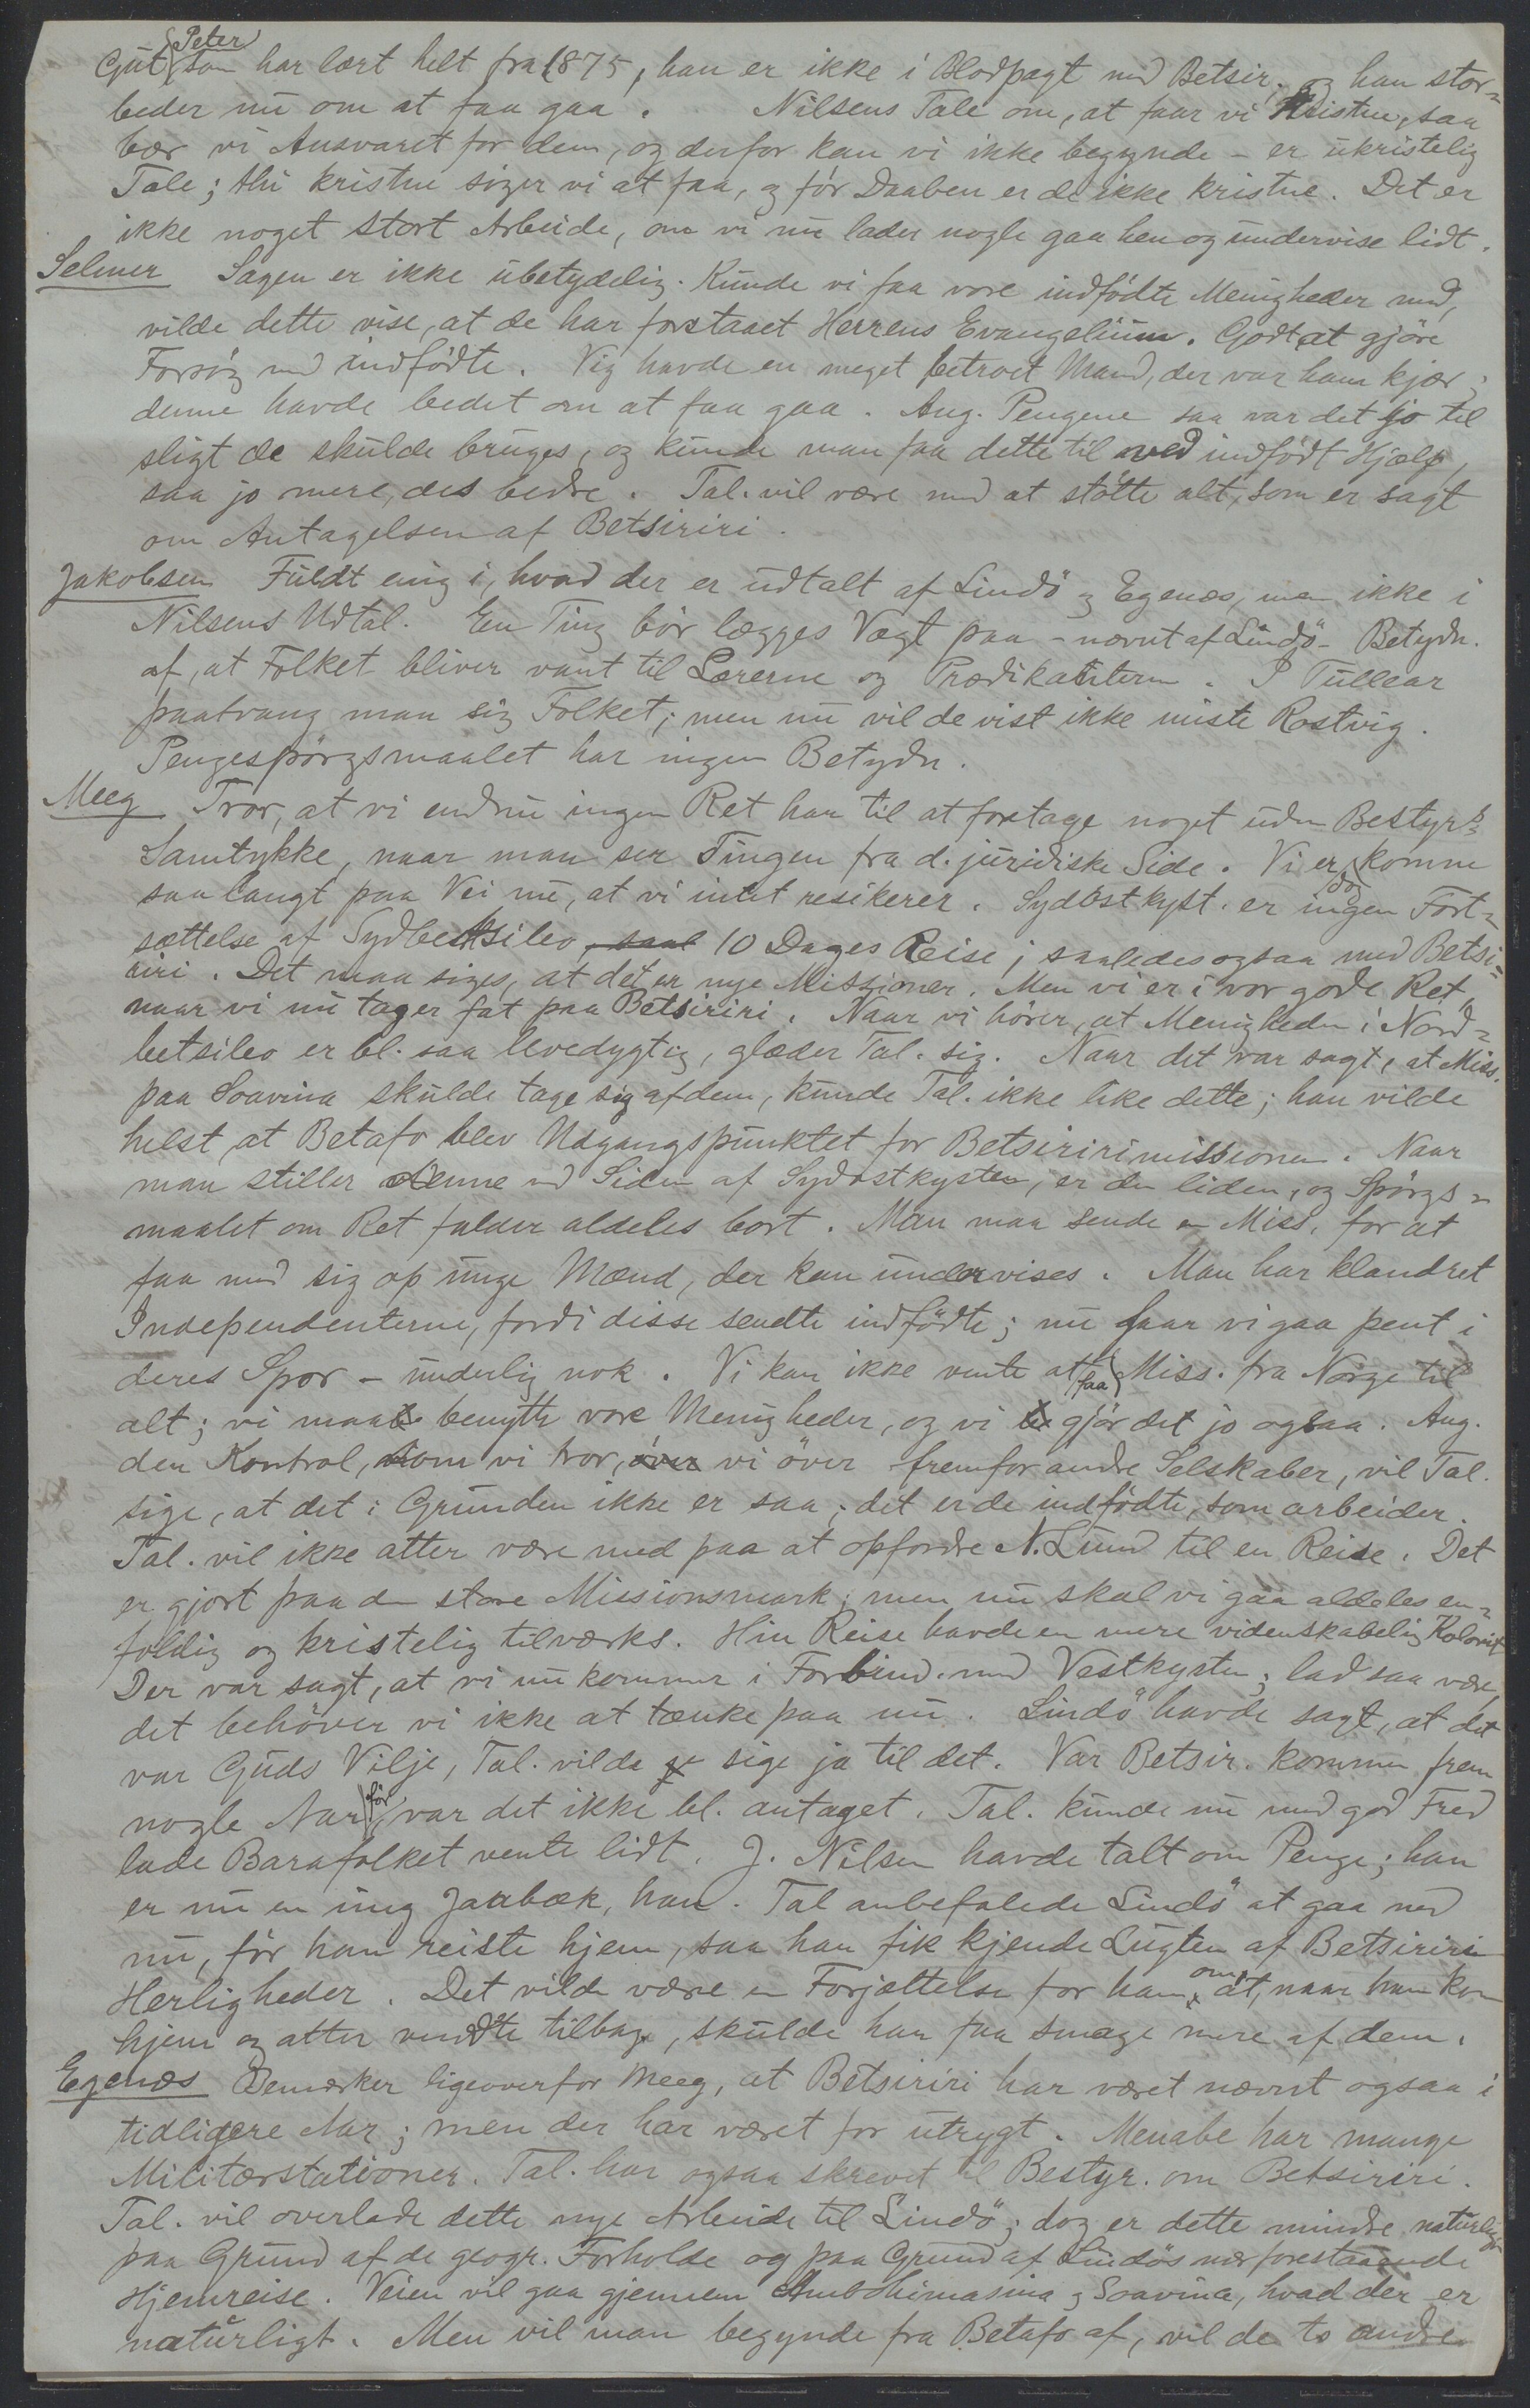 Gut Peter som har lært helt fra 1875, han er ikke i Blodpagt med Betsir., og han stor-
beder nu om at faa gaa. Nilsens Tale om, at faar vi Kristne, saa
bær vi Ansvaret for dem, og derfor kan vi ikke begynde – er ukristelig
Tale; thi kristne siger vi at faa, og før Daaben er de ikke kristne. Det er
ikke noget stort Arbeide, om vi nu lader nogle gaa hen og undervise lidt.
Selmer Sagen er ikke ubetydelig. Kunde vi faa vore indfødte Menigheder med,
vilde dette vise, at de har forstaaet Herrens Evangelium. Godt at gjøre
Forsøg med indfødte. Vig havde en meget betroet Mand, der var ham kjær;
denne havde bedet om at faa gaa. Ang. Pengene saa var det jo til
sligt de skulde bruges, og kunde man faa dette til ved indfødt Hjælp,
saa jo mere, des bedre. Tal. vil være med at støtte alt, som er sagt
om Antagelsen af Betsiriri.
Jakobsen Fuldt enig i, hvad der er udtalt af Lindø og Egenæs, men ikke i
Nilsens Udtal. En Ting bør lægges Vægt paa – nævnt af Lindø – Betydn.
af, at Folket bliver vant til Lærerne og Prædikanterne. I Tullear
paatvang man sig Folket; men nu vil de vist ikke miste Rostvig.
Pengespørgsmaalet har ingen Betydn.
Meeg Tror, at vi endnu ingen Ret har til at foretage noget uden Bestyrs
Samtykke, naar man ser Tingen fra d. juridiske Side. Vi er komne
saa langt paa Vei nu, at vi intet resikerer. Sydøstkyst. er dog ingen Fort-
sættelse af Sydbetsileo, 10 Dages Reise; saaledes ogsaa med Betsi-
riri. Det maa siges, at det er nye Missioner. Men vi er i vor gode Ret,
naar vi nu tager fat paa Betsiriri. Naar vi hører, at Menigheden i Nord-
betsileo er bl. saa levedygtig, glæder Tal. sig. Naar det var sagt, at Miss.
paa Soavina skulde tage sig af dem, kunde Tal. ikke like dette; han vilde
helst, at Betafo blev Udgangspunktet for Betsiririmissionen. Naar
man stiller denne ved Siden af Sydøstkysten, er den liden, og Spørgs-
maalet om Ret falder aldeles bort. Man maa sende en Miss. for at
faa med sig op unge Mænd, der kan undervises. Man har klandret
Independenterne, fordi disse sendte indfødte; nu faar vi gaa pent i
deres Spor – underlig nok. Vi kan ikke vente at faa Miss. fra Norge til
alt; vi maa benytte vore Menigheder, og vi gjør det jo ogsaa. Ang.
den Kontrol, som vi tror, vi øver fremfor andre Selskaber, vil Tal.
sige, at det i Grunden ikke er saa; det er de indfødte, som arbeider.
Tal. vil ikke atter være med paa at opfordre N. Lund til en Reise. Det
er gjort paa den store Missionsmark; men nu skal vi gaa aldeles en-
foldig og kristelig tilværks. Hin Reise havde en mere videnskabelig Kolorit
Der var sagt, at vi nu kommer i Forbind. med Vestkysten; lad saa være,
det behøver vi ikke at tænke paa nu. Lindø havde sagt, at det
var Guds Vilje, Tal. vilde sige ja til det. Var Betsir. kommen frem
nogle Aar før, var det ikke bl. antaget. Tal. kunde nu med god Fred
lade Barafolket vente lidt. J. Nilsen havde talt om Penge; han
er nu en ung Jaabæk, han. Tal anbefalede Lindø at gaa ned
nu, før han reiste hjem, saa han fik kjende Lugten af Betsiriri
Herligheder. Det vilde være en Forjættelse for ham om, at, naar han kom
hjem og atter vendte tilbage, skulde han faa smage mere af dem.
Egenæs Bemærker ligeoverfor Meeg, at Betsiriri har været nævnt ogsaa i
tidligere Aar; men der har været for utrygt. Menabe har mange
Militærstationer. Tal. har ogsaa skrevet til Bestyr. om Betsiriri.
Tal. vil overlade dette nye Arbeide til Lindø; dog er dette mindre naturligt
paa Grund af de geogr. Forholde og paa Grund af Lindøs nær forestaaende
Hjemreise. Veien vil gaa gjennem Ambohimasina og Soavina, hvad der er
naturligt. Men vil man begynde fra Betafo af, vil de to andre